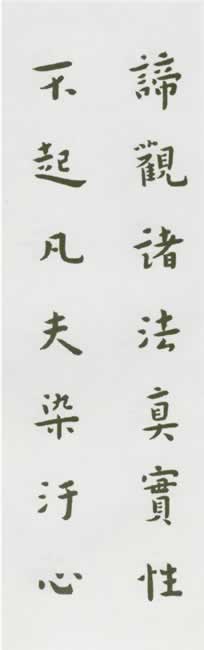 諦觀諸法真實性
不起凡夫染汙心